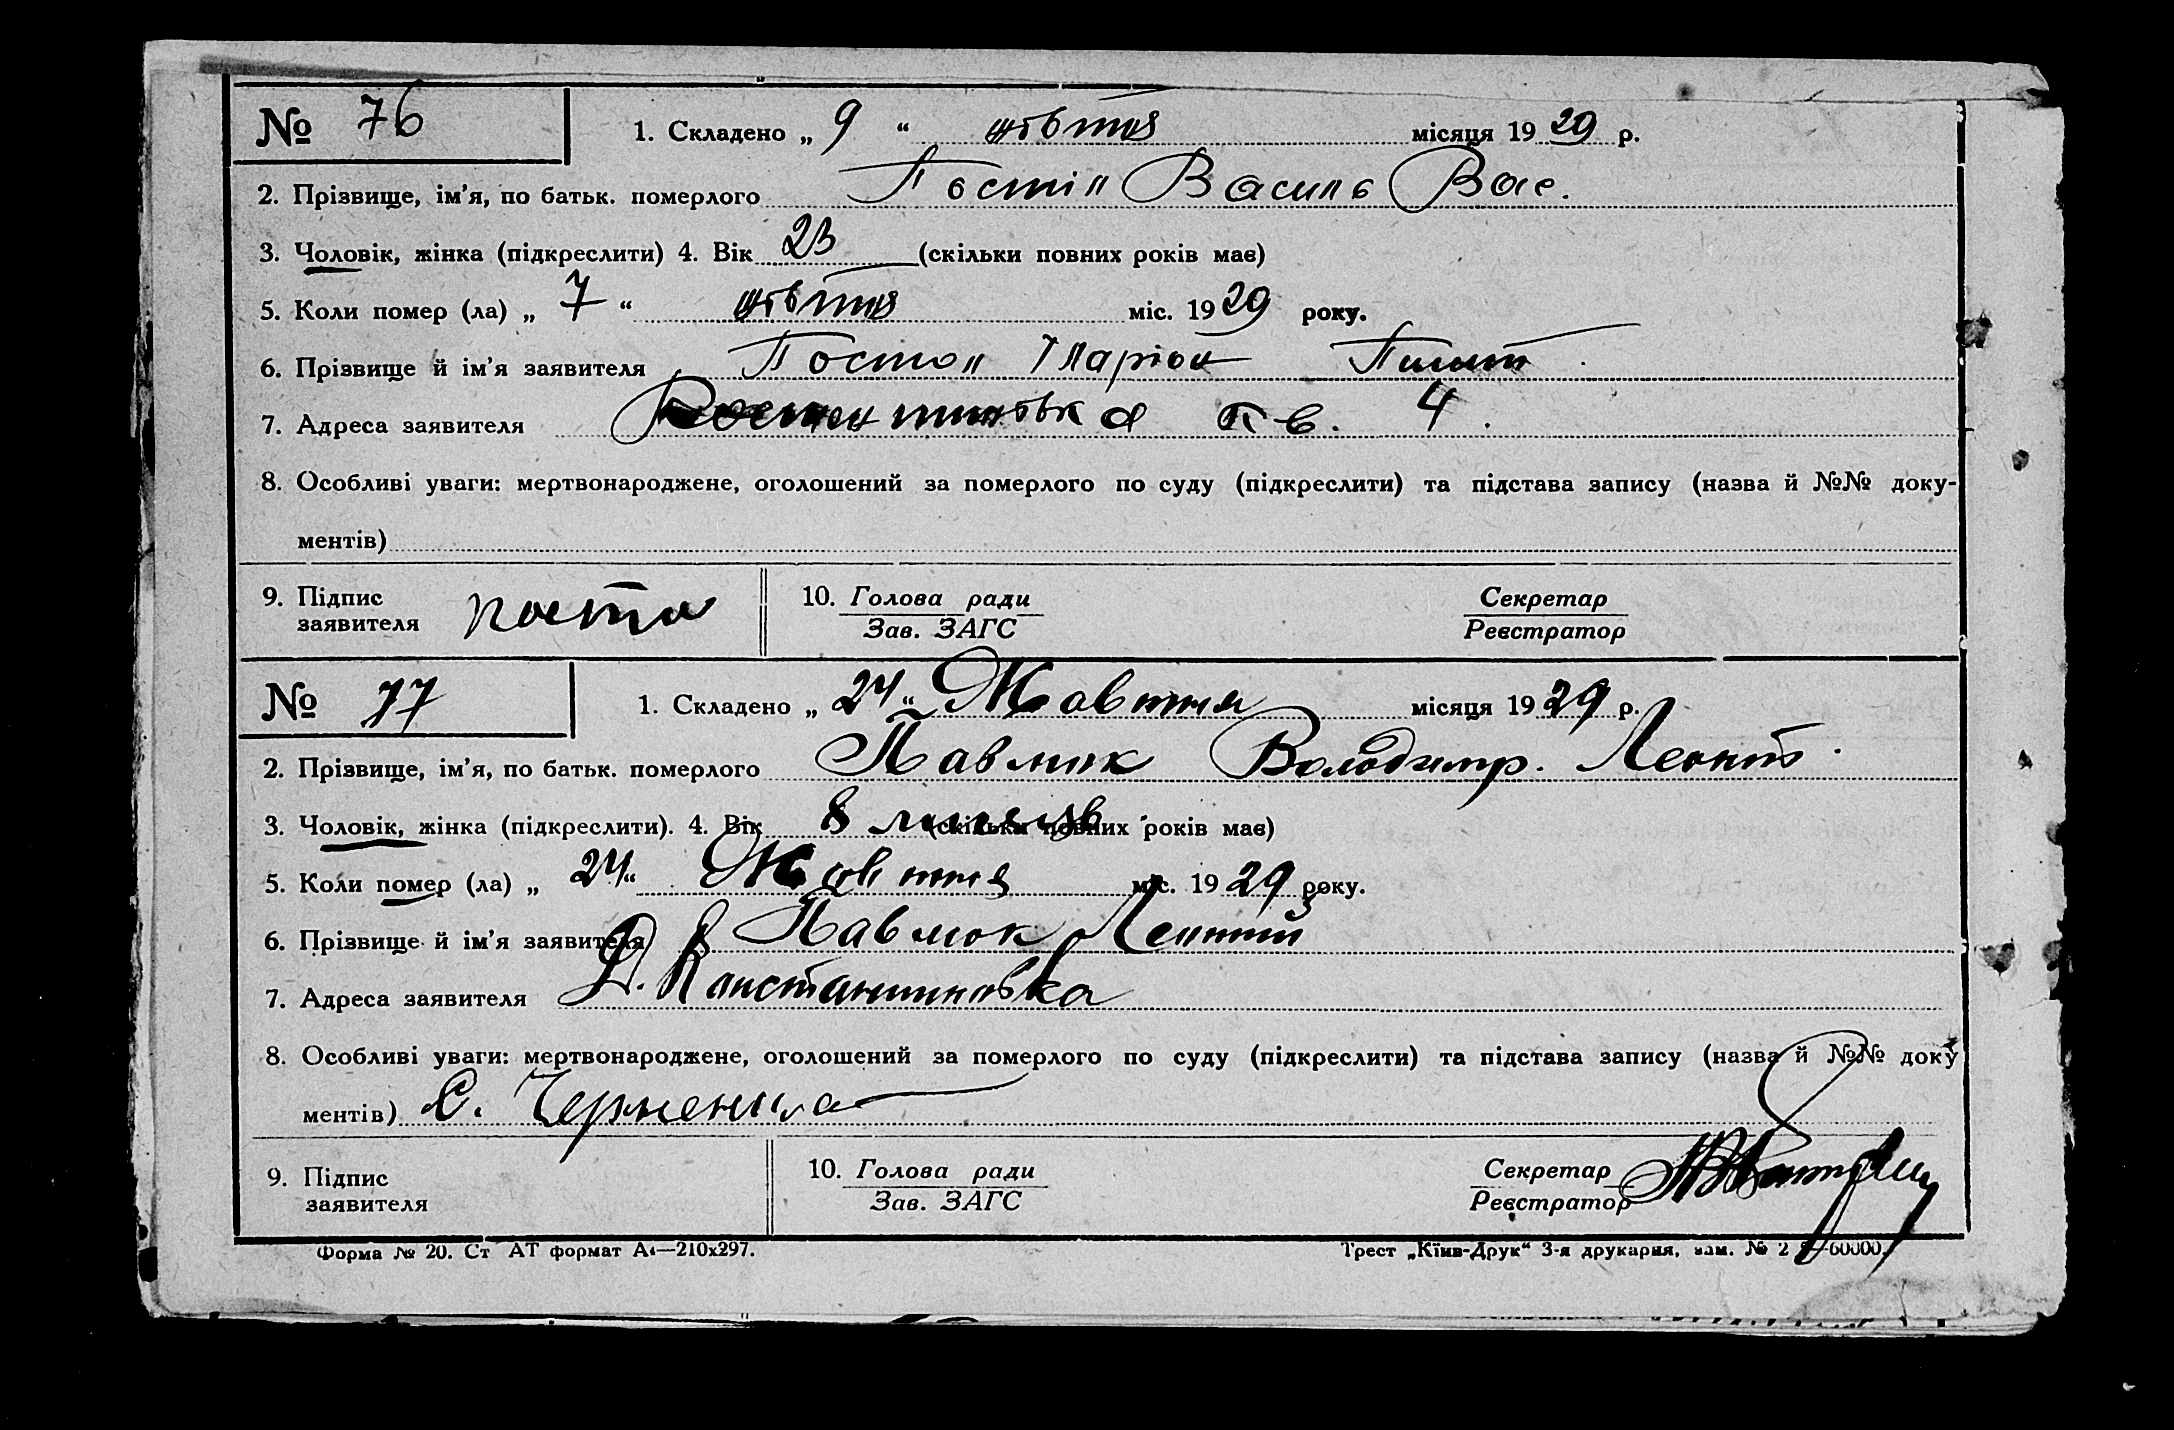 № 76 1. Складено „ 9 “ жовтня місяця 1929 р.
2. Прізвище, ім’я, по батьк. померлого Постіл Василь Вас.
3. Чоловік, жінка (підкреслити) 4. Вік 23 (скільки повних років має)
5. Коли помер (ла) „ 7 “ жовтня міс. 1929 року.
6. Прізвище й ім’я заявителя Постол Іларіон
7. Адреса заявителя 4.
8. Особливі уваги: мертвонароджене, оголошений за померлого по суду (підкреслити) та підстава запису (назва й №№ доку-
ментів)
9. Підпис 10. Голова ради Секретар
заявителя Зав. ЗАГС Реєстратор
№ 77 1. Складено „ 24 “ Жовтня місяця 1929 р.
2. Прізвище, ім’я, по батьк. померлого Павлик Володимир. Леонт.
3. Чоловік, жінка (підкреслити). 4. Вік 8 (скільки повних років має)
5. Коли помер (ла) „ 24 “ Жовтня міс. 1929 року.
6. Прізвище й ім’я заявителя Павлюк Леонтій
7. Адреса заявителя Д. Константиновка
8. Особливі уваги: мертвонароджене, оголошений за померлого по суду (підкреслити) та підстава запису (назва й №№ доку
ментів) С.
9. Підпис 10. Голова ради Секретар
заявителя Зав. ЗАГС Реєстратор
Форма № 20. Ст АТ формат А4—210х297. Трест „Київ-Друк“ 3-я друкарня, зам. № 2 —60000.